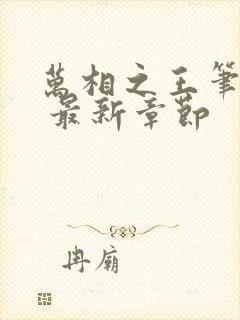 萬相之王筆
最新章節
冉廟